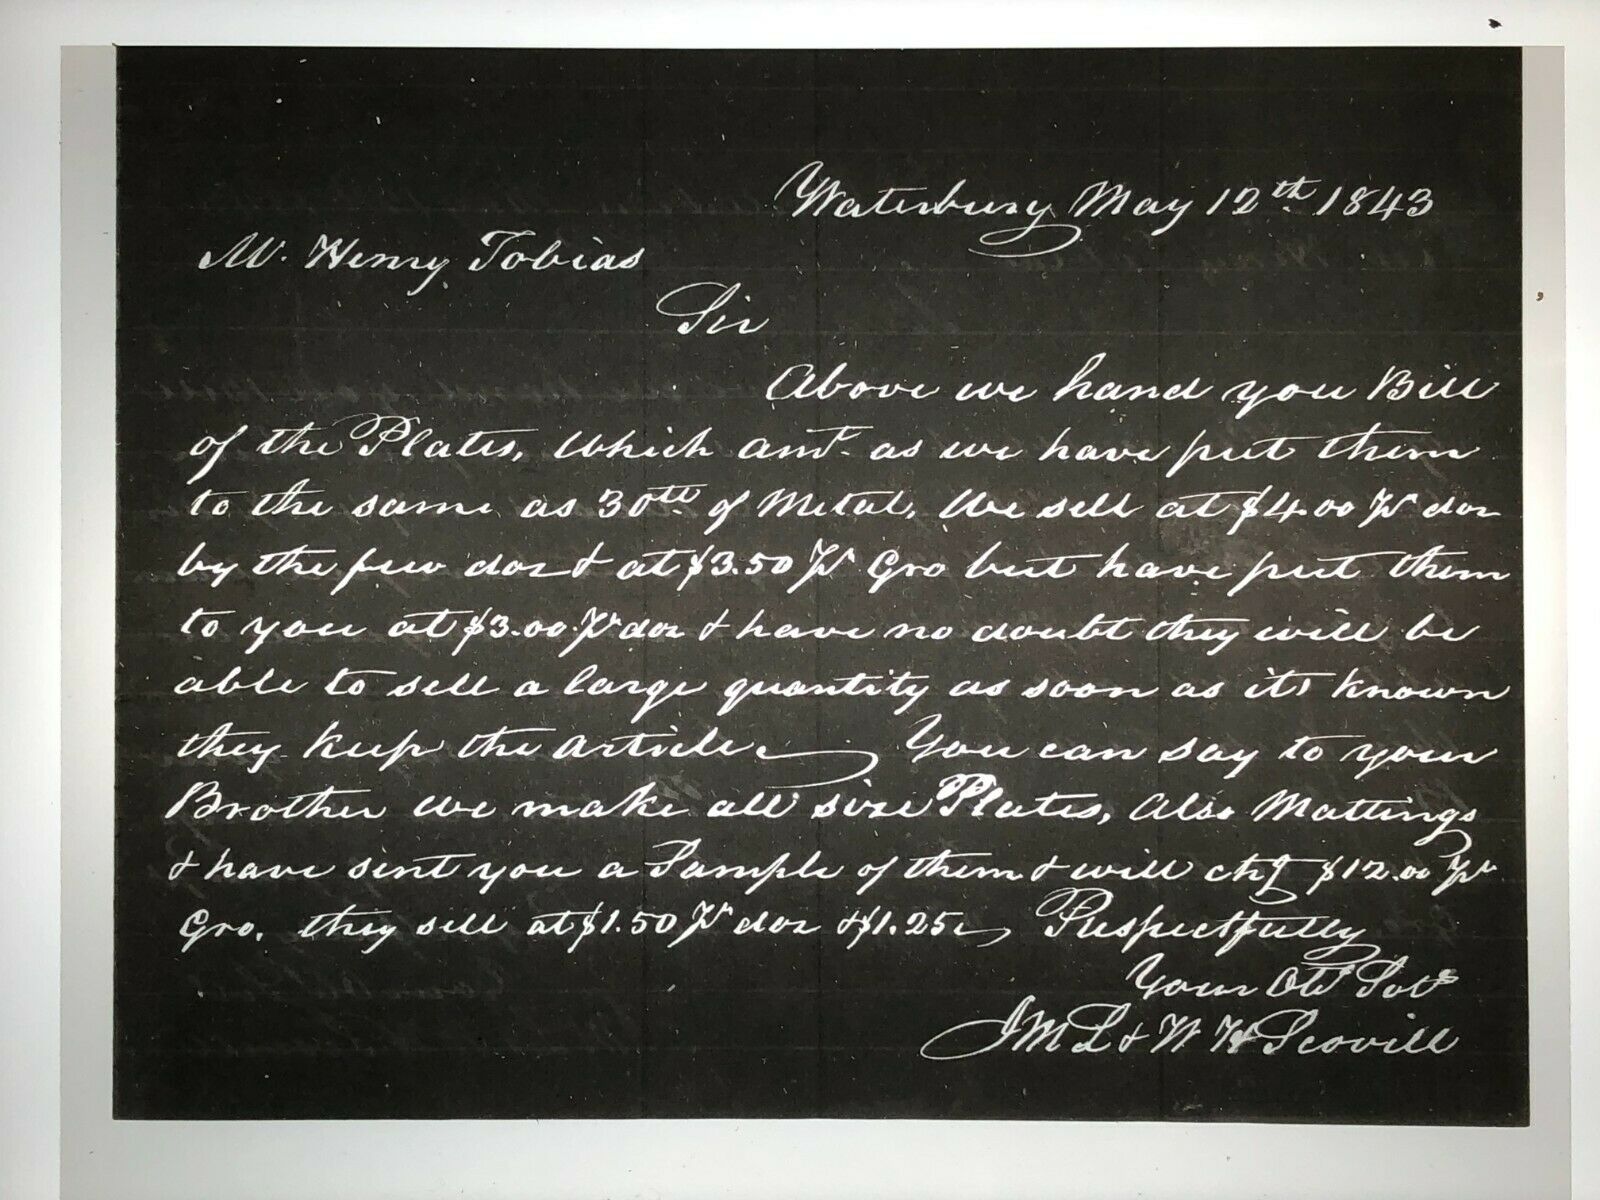 Waterbury May 12th. 1843
Mr. Henry Tobias
Sir
Above we hand you Bill
of the Plates, which amt. as we have put them
to the same as 30 lb of Metal, We sell at $4.00 Pr doz
by the few doz & at $3.50 Pr Gro but have put them
to you at $3.00 Pr doz & have no doubt they will be
able to sell a large quantity as soon as its known
they keep the article. You can say to your
Brother we make all size Plates, Also Mattings
& have sent you a Sample of them & will chg $12.00 Pr
Gro. they sell at $1.50 Pr doz & $1.25 Respectfully
Your Obt Svts
J M L & W H Scovill